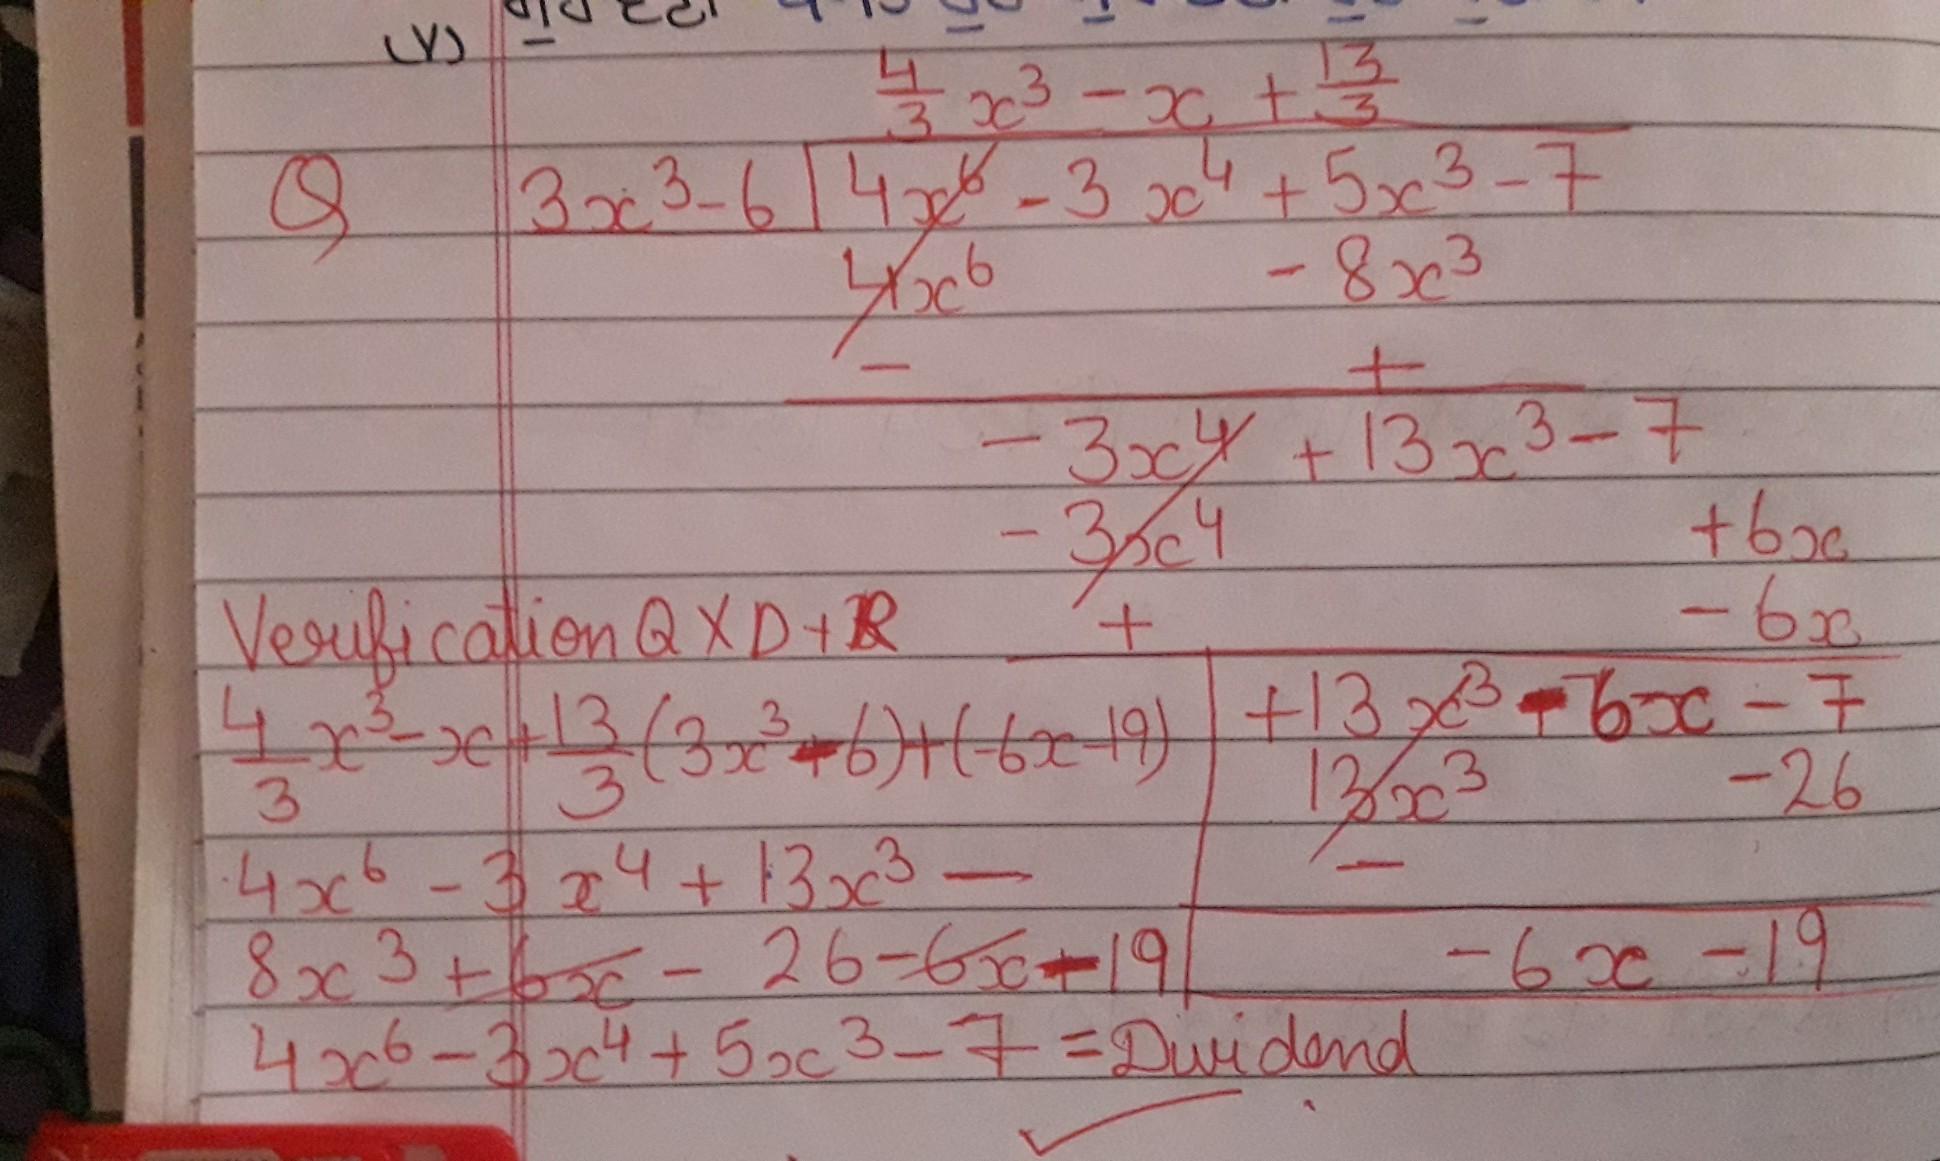 (V)
4/3 x³ - x + 13/3
Q 3x³-6 | 4x⁶ - 3x⁴ + 5x³ - 7
4x⁶ - 8x³
- +
- 3x⁴ + 13x³ - 7
- 3x⁴ + 6x
+ - 6x
+13x³ - 6x - 7
13x³ - 26
-
-6x - 19
Verification Q X D + R
4/3 x³ - x + 13/3 (3x³ - 6) + (-6x - 19)
4x⁶ - 3x⁴ + 13x³ -
8x³ + 6x - 26 - 6x - 19
4x⁶ - 3x⁴ + 5x³ - 7 = Dividend